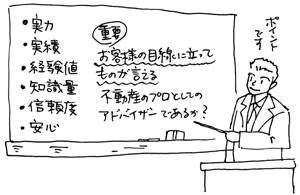 ・実力
・実績
・経験値
・知識量
・信頼度
・安心
重要
お客様の目線に立って
ものが言える
不動産のプロとしての
アドバイザーであるか?
ポイント
です